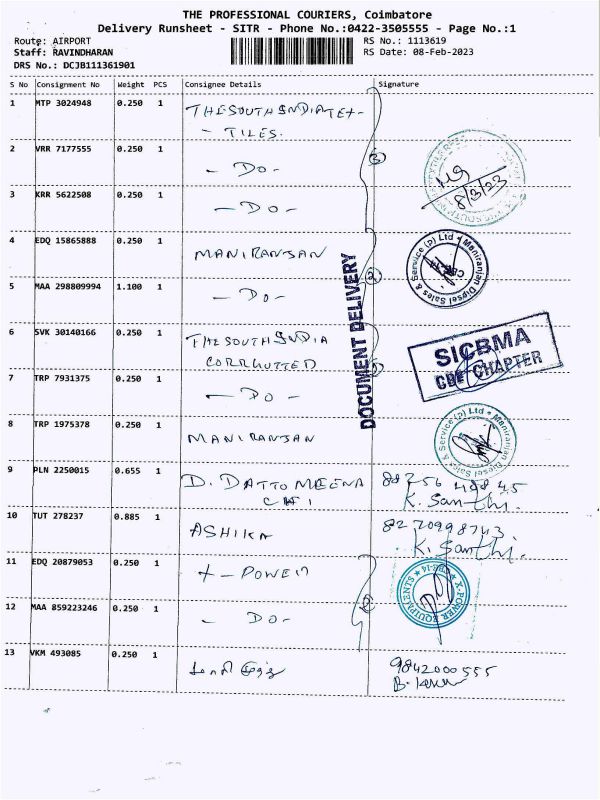 THE PROFESSIONAL COURIERS, Coimbatore
Delivery Runsheet - SITR - Phone No.:0422-3505555 - Page No.:1
Route: AIRPORT
RS No.: 1113619
Staff: RAVINDHARAN
RS Date: 08-Feb-2023
DRS No.: DCJB111361901
S No Consignment No Weight PCS Consignee Details Signature
1 MTP 3024948 0.250 1 THE SOUTH INDIA TEX-
- TILES.
2 VRR 7177555 0.250 1 - DO -
3 KRR 5622508 0.250 1 - DO -
3
8/3/23
4 EDQ 15865888 0.250 1 MANIRANJAN
5 MAA 298809994 1.100 1 - DO -
2
Maniranjan Diesel Sales & Service (p) Ltd
DOCUMENT DELIVERY
6 SVK 30140166 0.250 1 THE SOUTH INDIA
CORRHUTTED
SICBMA
CBE CHAPTER
7 TRP 7931375 0.250 1 - DO -
8 TRP 1975378 0.250 1 MANIRANJAN
Maniranjan Diesel Sales & Service (p) Ltd
9 PLN 2250015 0.655 1 D. DATTO MEENA
K. Santhi.
10 TUT 278237 0.885 1 ASHIKA
8270998743
K. Santhi.
11 EDQ 20879053 0.250 1 X - POWER
12 MAA 859223246 0.250 1 - DO -
2
X-POWER EQUIPMENTS
13 VKM 493085 0.250 1
9842000555